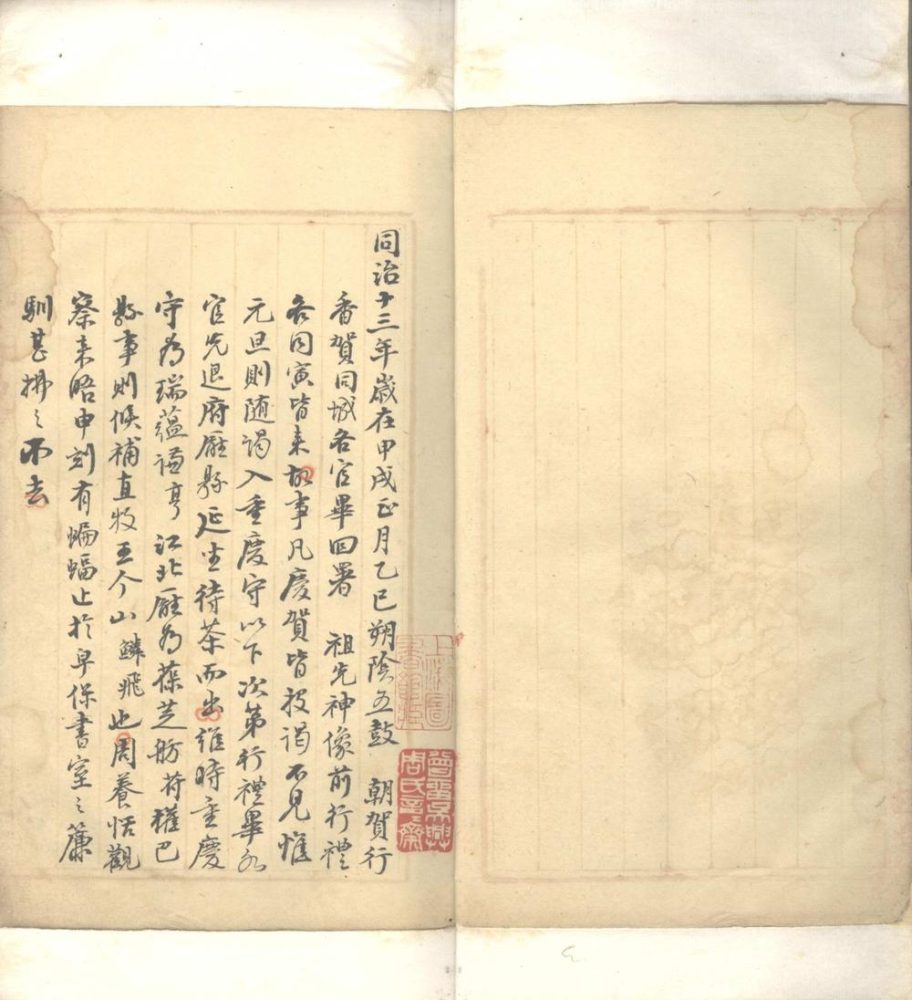 同治十三年歲在甲戌正月乙巳朔陰五鼓　朝賀行
香賀同城各官畢回署　祖先神像前行禮
各同寅皆來故事凡慶賀皆投謁不見惟
元旦則隨謁入重慶守以下次第行禮畢
官先退府廳縣延坐待茶而出維時重慶
守為瑞蘊謙亨江北廳為葆芝舫符權巴
縣事則候補直牧王介山鱗飛也周養恬觀
察來晤申刻有蝙蝠止於卓保書室之簾
馴甚拂之不去
曾留吳興
周氏言言齋